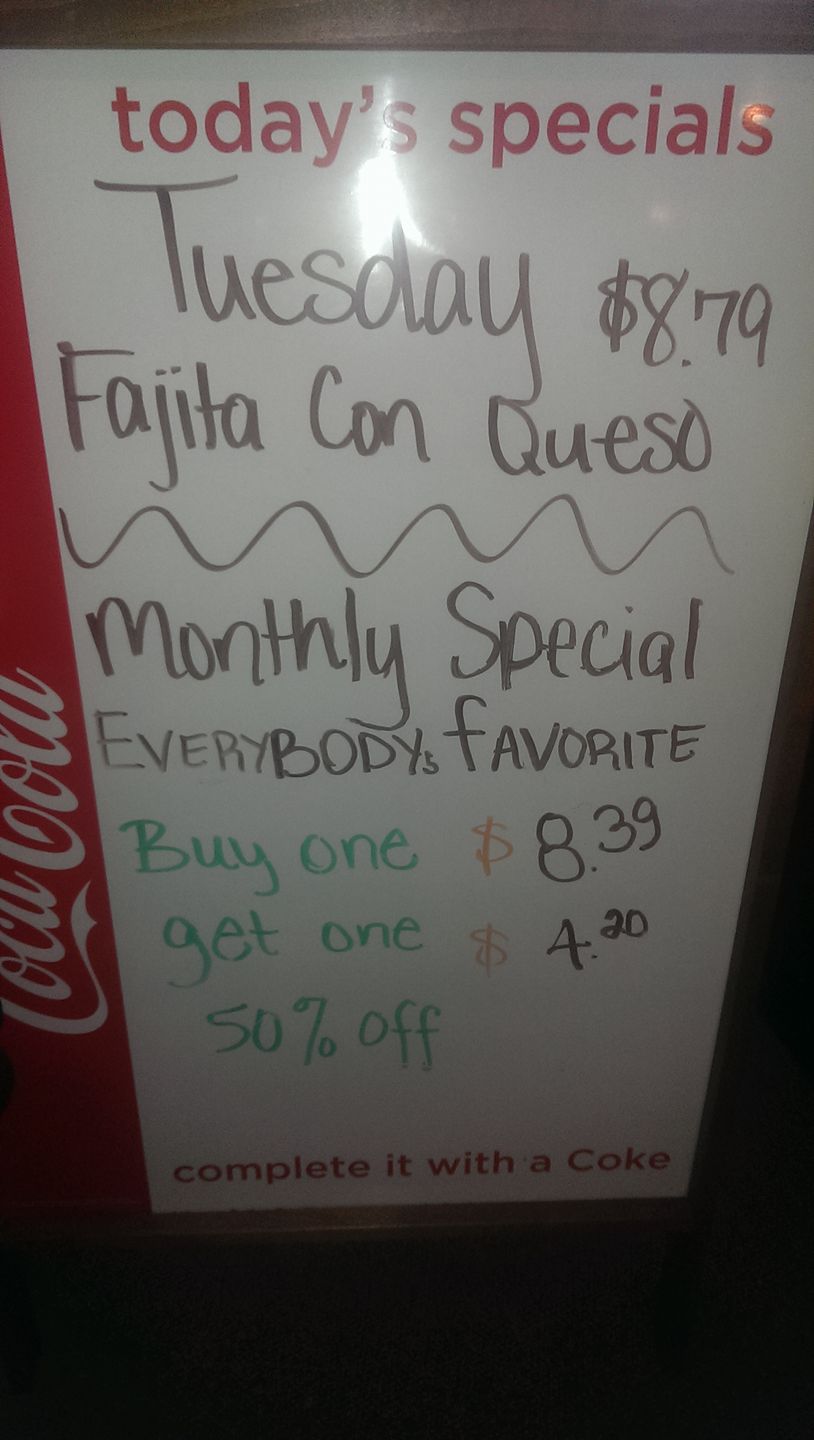 today's specials
Tuesday $8.79
Fajita Con Queso
Monthly Special
EVERYBODYs fAVORITE
Buy one $ 8.39
get one $ 4.20
50% off
complete it with a Coke
Coca Cola